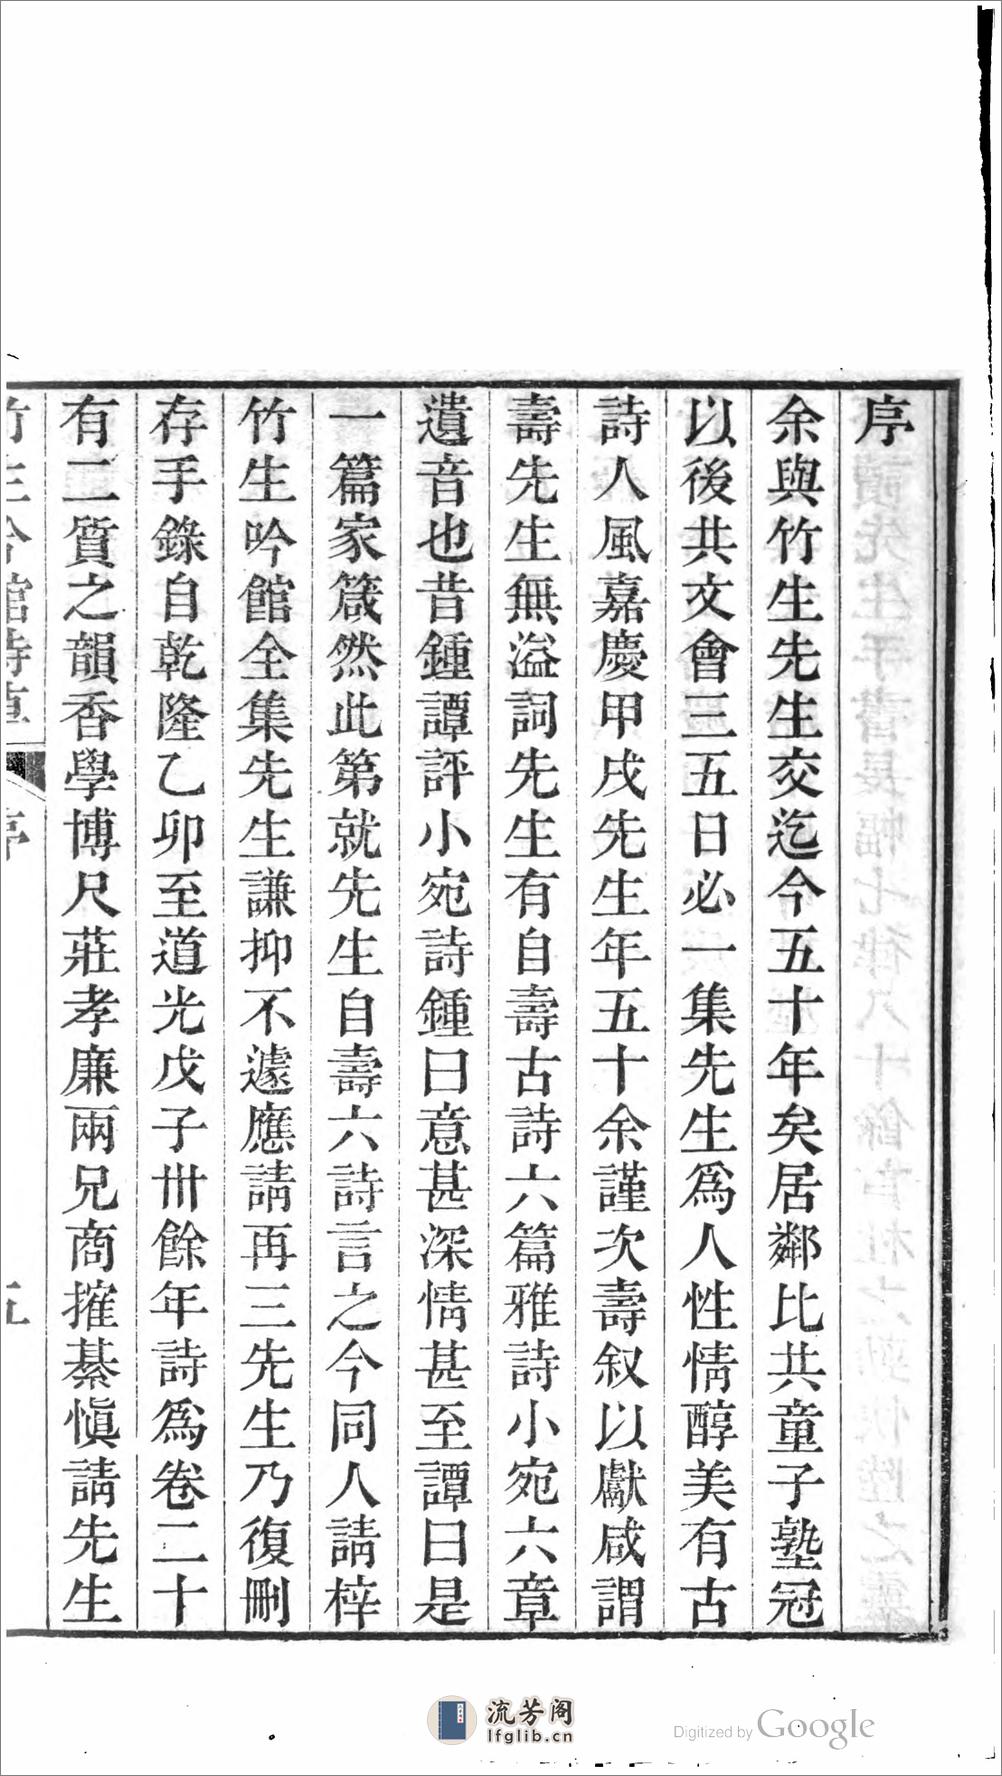 序
余與竹生先生交迄今五十年矣居鄰比共童子塾冠
以後共文會三五日必一集先生爲人性情醇美有古
詩人風嘉慶甲戌先生年五十余謹次壽叙以獻咸謂
壽先生無溢詞先生有自壽古詩六篇雅詩小宛六章
遺音也昔鍾譚評小宛詩鍾曰意甚深情甚至譚曰是
一篇家箴然此第就先生自壽六詩言之今同人請梓
竹生吟館全集先生謙抑不遽應請再三先生乃復刪
存手錄自乾隆乙卯至道光戊子卅餘年詩爲卷二十
有二質之韻香學博尺莊孝廉兩兄商搉綦愼請先生
竹生吟館詩草
序
五
流芳阁
lfglib.cn
Digitized by Google